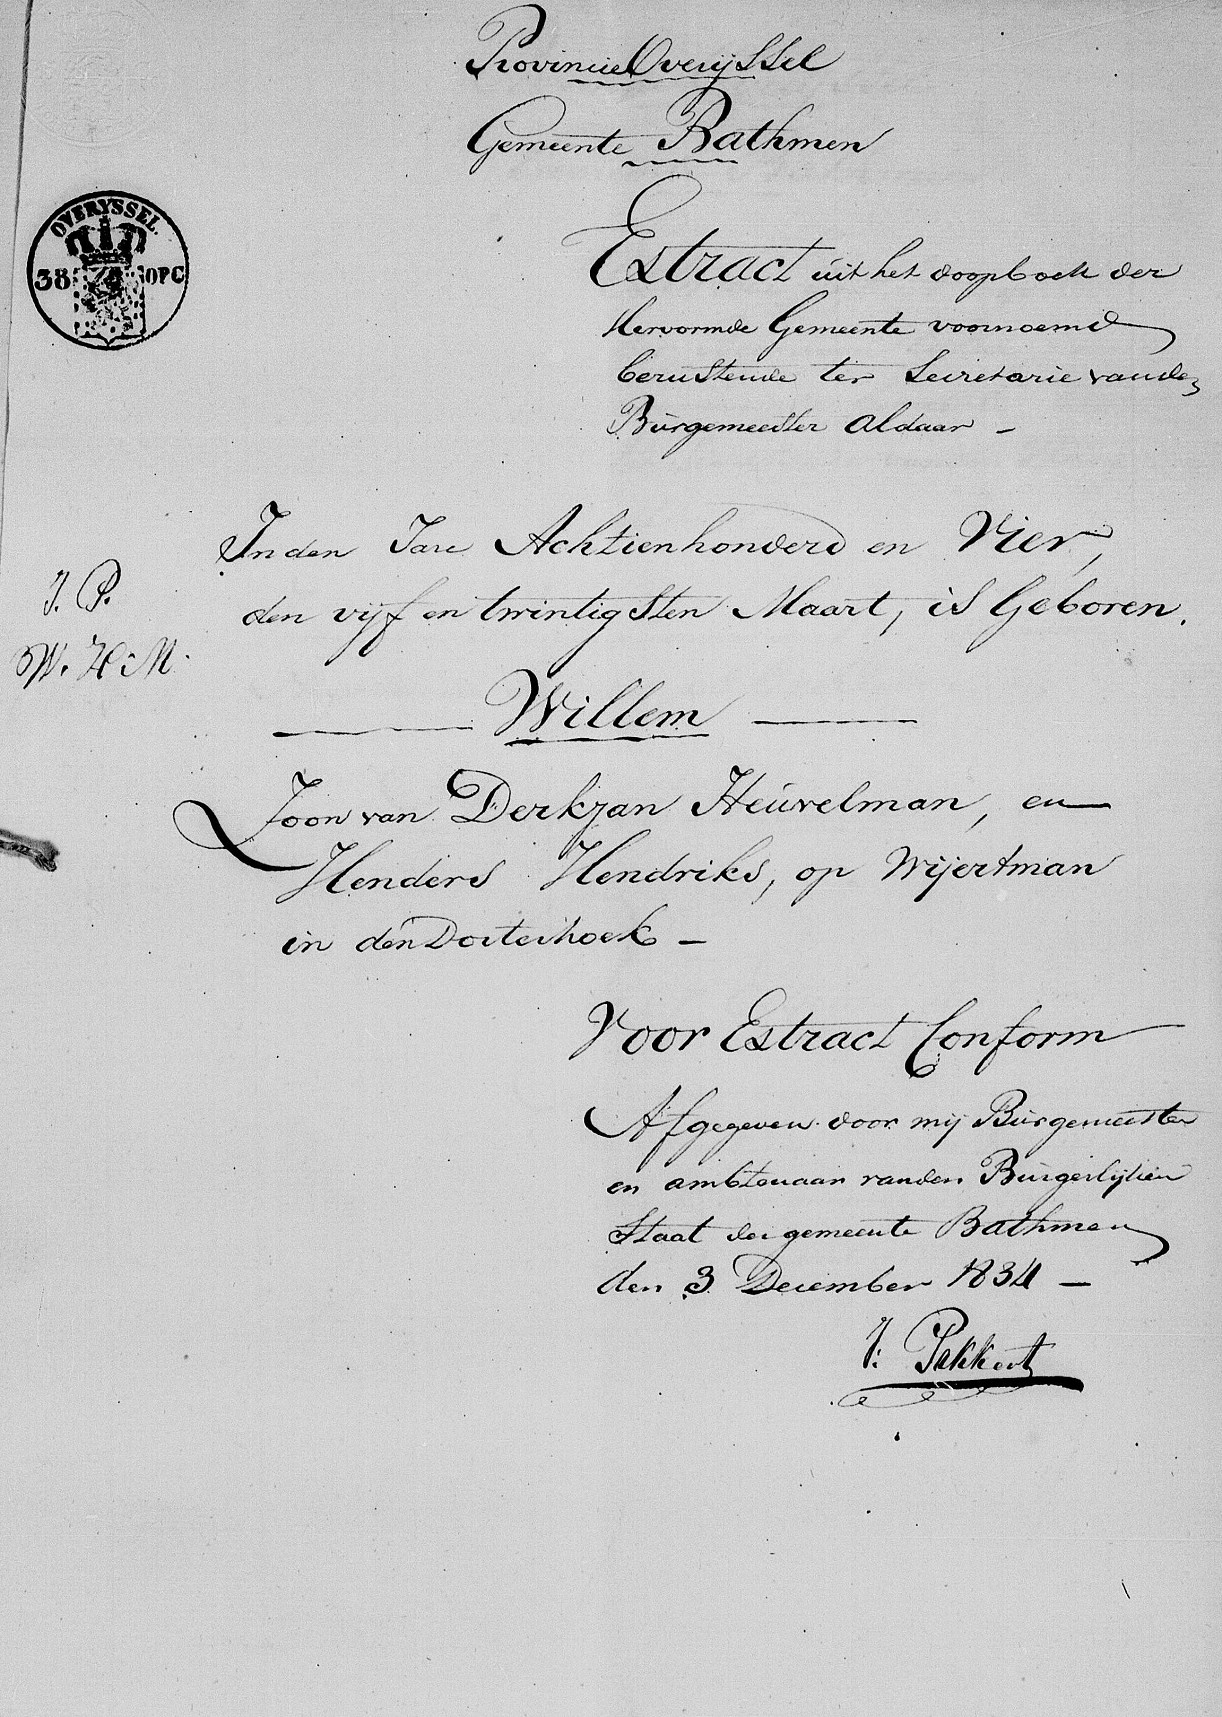 Provincie Overijssel
Gemeente Bathmen
OVERYSSEL.
38 OPC
Extract uit het doopboek der
Hervormde Gemeente voornoemd
berustende ter Secretarie van de
Burgemeester aldaar -
In den Jare Achtienhonderd en Vier,
den vijf en twintigsten Maart, is Geboren.
J. P.
W. H. M.
Willem
Zoon van Derkjan Heuvelman, en
Henders Hendriks, op Wijertman
in den Dorterhoek -
Voor Extract Conform
Afgegeven door mij Burgemeester
en ambtenaar van den Burgerlijken
Staat der gemeente Bathmen
den 3 December 1834 -
J: Pakkert